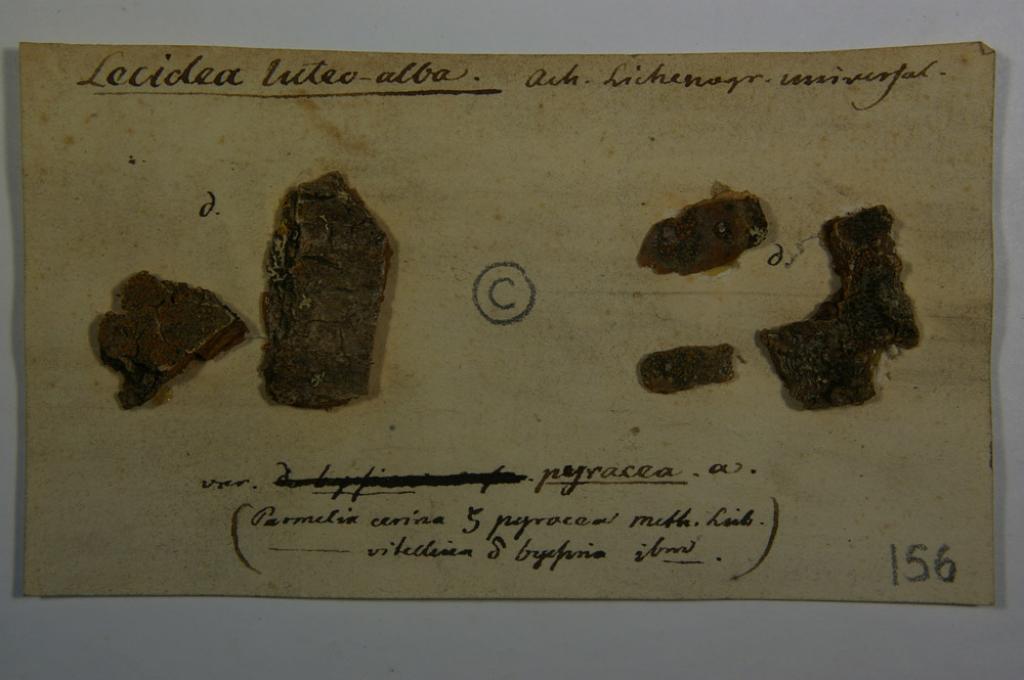 Lecidea luteo-alba. Ach. Lichenogr. universal.
δ.
δ.
C
var. pyracea. a.
(Parmelia cerina ζ pyracea meth. Lich.
—— vitellina δ byssina ibid.)
156